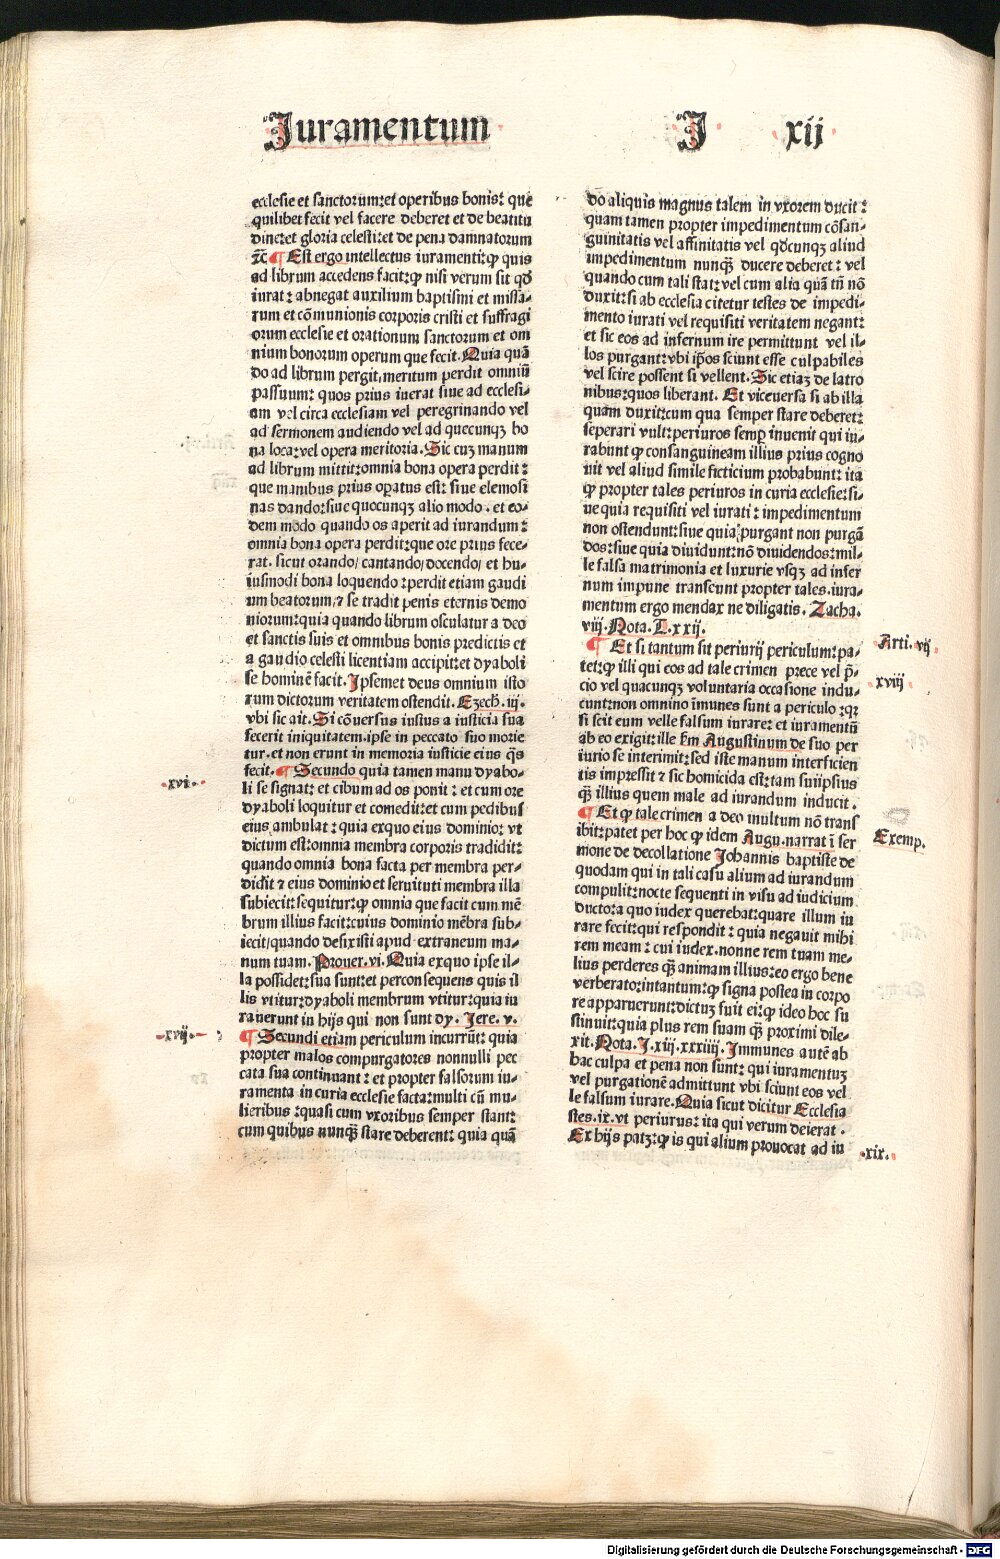 Juramentum J xij
ecclesie et sanctorum: et operibus bonis: que
quilibet fecit vel facere deberet et de beatitu
dine: et gloria celesti: et de pena damnatorum
⁊c̄ ¶ Est ergo intellectus iuramenti: ꝙ quis
ad librum accedens facit: ꝙ nisi verum sit qd̛
iurat: abnegat auxilium baptismi et missa-
rum et cōmunionis corporis cristi et suffragi
orum ecclesie et orationum sanctorum et om
nium bonorum operum que fecit. Quia quā
do ad librum pergit, meritum perdit omniū
passuum: quos prius iuerat siue ad ecclesi-
am vel circa ecclesiam vel peregrinando vel
ad sermonem audiendo vel ad quecunqꝫ bo
na loca: vel opera meritoria. Sic cuꝫ manum
ad librum mittit: omnia bona opera perdit:
que manibus prius oꝑatus est: siue elemosi
nas dando: siue quocunqꝫ alio modo. et eo-
dem modo quando os aperit ad iurandum:
omnia bona opera perdit: que ore prius fece-
rat. sicut orando/ cantando/ docendo/ et hu-
iusmodi bona loquendo: perdit etiam gaudi
um beatorum, ⁊ se tradit penis eternis demo
niorum: quia quando librum osculatur a deo
et sanctis suis et omnibus bonis predictis et
a gaudio celesti licentiam accipit: et dyaboli
se hominē facit. Ipsemet deus omnium isto
rum dictorum veritatem ostendit. Ezech. iij.
vbi sic ait. Si cōuersus iustus a iusticia sua
fecerit iniquitatem. ipse in peccato suo morie
tur. et non erunt in memoria iusticie eius q̄s
fecit. ¶ Secundo quia tamen manu dyabo-
li se signat: et cibum ad os ponit: et cum ore
dyaboli loquitur et comedit: et cum pedibus
eius ambulat: quia exquo eius dominio: vt
dictum est: omnia membra corporis tradidit:
quando omnia bona facta per membra per-
didit ⁊ eius dominio et seruituti membra illa
subiecit: sequitur: ꝙ omnia que facit cum mē
brum illius facit: cuius dominio mēbra sub-
iecit/ quando desixisti apud extraneum ma-
num tuam. Prouer. vi. Quia exquo ipse il-
la possidet: sua sunt: et per consequens quis il
lis vtitur: dyaboli membrum vtitur: quia iu
rauerunt in hijs qui non sunt dy. Jere. v.
¶ Secundi etiam periculum incurrūt: quia
propter malos compurgatores nonnulli pec
cata sua continuant: et propter falsorum iu-
ramenta in curia ecclesie facta: multi cū mu-
lieribus: quasi cum vxoribus semper stant:
cum quibus nunqꝫ stare deberent: quia quā
.xvi.
.xvij.
do aliquis magnus talem in vxorem ducit:
quam tamen propter impedimentum cōsan-
guinitatis vel affinitatis vel qd̛cunqꝫ aliud
impedimentum nunqꝫ ducere deberet: vel
quando cum tali stat: vel cum alia quā tn̄ nō
duxit: si ab ecclesia citetur testes de impedi-
mento iurati vel requisiti veritatem negant:
et sic eos ad infernum ire permittunt vel il-
los purgant: vbi ip̄os sciunt esse culpabiles
vel scire possent si vellent. Sic etiaꝫ de latro
nibus: quos liberant. Et viceuersa si ab illa
quam duxit: cum qua semper stare deberet:
seperari vult: periuros semꝑ inuenit qui iu-
rabunt ꝙ consanguineam illius prius cogno
uit vel aliud simile ficticium probabunt: ita
ꝙ propter tales periuros in curia ecclesie: si-
ue quia requisiti vel iurati: impedimentum
non ostendunt: siue quia purgant non purgā
dos: siue quia diuidunt: nō diuidendos: mil-
le falsa matrimonia et luxurie vsqꝫ ad infer
num impune transeunt propter tales. iura-
mentum ergo mendax ne diligatis. Zacha.
viij. Nota. T. xxij.
¶ Et si tantum sit periurij periculum: pa-
tet: ꝙ illi qui eos ad tale crimen prece vel p̄-
cio vel quacunqꝫ voluntaria occasione indu-
cunt: non omnino īmunes sunt a periculo: qꝛ
si scit eum velle falsum iurare: et iuramentū
ab eo exigit: ille ẜm Augustinum de suo per
iurio se interimit: sed iste manum interficien
tis impressit ⁊ sic homicida est: tam suiipsius
qꝫ illius quem male ad iurandum inducit.
¶ Et ꝙ tale crimen a deo inultum nō trans
ibit: patet per hoc ꝙ idem Augu. narrat ī ser
mone de decollatione Johannis baptiste de
quodam qui in tali casu alium ad iurandum
compulit: nocte sequenti in visu ad iudicium
ductor: a quo iudex querebat: quare illum iu
rare fecit: qui respondit: quia negauit mihi
rem meam: cui iudex. nonne rem tuam me-
lius perderes qꝫ animam illius: eo ergo bene
verberato: intantum: ꝙ signa postea in corpo
re apparuerunt: dictuꝫ fuit ei: ꝙ ideo hoc su
stinuit: quia plus rem suam qꝫ proximi dile-
xit. Nota. J. xij. xxxiiij. Immunes autē ab
hac culpa et pena non sunt: qui iuramentuꝫ
vel purgationē admittunt vbi sciunt eos vel
le falsum iurare. Quia sicut dicitur Ecclesia
stes. ix. vt periurus: ita qui verum deierat.
Ex hijs patꝫ: ꝙ is qui alium prouocat ad iu
Arti. vij
.xviij.
Exemp.
.xix.
Digitalisierung gefördert durch die Deutsche Forschungsgemeinschaft - DFG